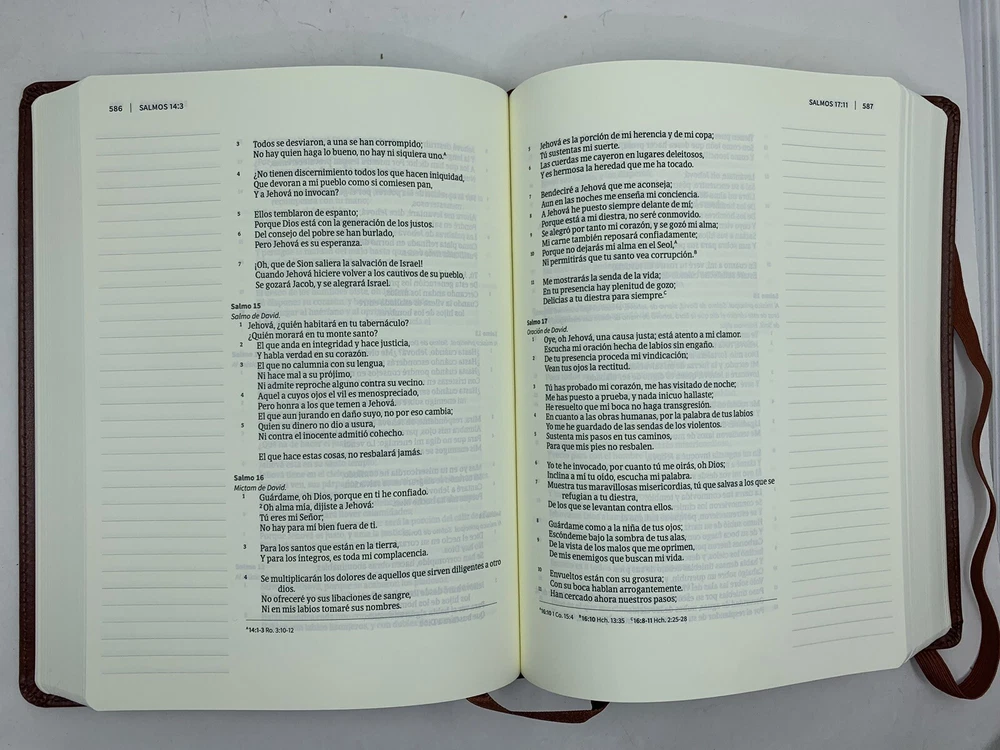 586 | SALMOS 14:3
3 Todos se desviaron, a una se han corrompido;
No hay quien haga lo bueno, no hay ni siquiera uno.A
4 ¿No tienen discernimiento todos los que hacen iniquidad,
Que devoran a mi pueblo como si comiesen pan,
Y a Jehová no invocan?
5 Ellos temblaron de espanto;
Porque Dios está con la generación de los justos.
6 Del consejo del pobre se han burlado,
Pero Jehová es su esperanza.
7 ¡Oh, que de Sion saliera la salvación de Israel!
Cuando Jehová hiciere volver a los cautivos de su pueblo,
Se gozará Jacob, y se alegrará Israel.
Salmo 15
Salmo de David.
1 Jehová, ¿quién habitará en tu tabernáculo?
¿Quién morará en tu monte santo?
2 El que anda en integridad y hace justicia,
Y habla verdad en su corazón.
3 El que no calumnia con su lengua,
Ni hace mal a su prójimo,
Ni admite reproche alguno contra su vecino.
4 Aquel a cuyos ojos el vil es menospreciado,
Pero honra a los que temen a Jehová.
El que aun jurando en daño suyo, no por eso cambia;
5 Quien su dinero no dio a usura,
Ni contra el inocente admitió cohecho.
El que hace estas cosas, no resbalará jamás.
Salmo 16
Mictam de David.
1 Guárdame, oh Dios, porque en ti he confiado.
2 Oh alma mía, dijiste a Jehová:
Tú eres mi Señor;
No hay para mí bien fuera de ti.
3 Para los santos que están en la tierra,
Y para los íntegros, es toda mi complacencia.
4 Se multiplicarán los dolores de aquellos que sirven diligentes a otro
dios.
No ofreceré yo sus libaciones de sangre,
Ni en mis labios tomaré sus nombres.
A14:1-3 Ro. 3:10-12
SALMOS 17:11 | 587
5 Jehová es la porción de mi herencia y de mi copa;
Tú sustentas mi suerte.
6 Las cuerdas me cayeron en lugares deleitosos,
Y es hermosa la heredad que me ha tocado.
7 Bendeciré a Jehová que me aconseja;
Aun en las noches me enseña mi conciencia.
8 A Jehová he puesto siempre delante de mí;
Porque está a mi diestra, no seré conmovido.
9 Se alegró por tanto mi corazón, y se gozó mi alma;
Mi carne también reposará confiadamente;
10 Porque no dejarás mi alma en el Seol,A
Ni permitirás que tu santo vea corrupción.B
11 Me mostrarás la senda de la vida;
En tu presencia hay plenitud de gozo;
Delicias a tu diestra para siempre.C
Salmo 17
Oración de David.
1 Oye, oh Jehová, una causa justa; está atento a mi clamor.
Escucha mi oración hecha de labios sin engaño.
2 De tu presencia proceda mi vindicación;
Vean tus ojos la rectitud.
3 Tú has probado mi corazón, me has visitado de noche;
Me has puesto a prueba, y nada inicuo hallaste;
He resuelto que mi boca no haga transgresión.
4 En cuanto a las obras humanas, por la palabra de tus labios
Yo me he guardado de las sendas de los violentos.
5 Sustenta mis pasos en tus caminos,
Para que mis pies no resbalen.
6 Yo te he invocado, por cuanto tú me oirás, oh Dios;
Inclina a mí tu oído, escucha mi palabra.
7 Muestra tus maravillosas misericordias, tú que salvas a los que se
refugian a tu diestra,
De los que se levantan contra ellos.
8 Guárdame como a la niña de tus ojos;
Escóndeme bajo la sombra de tus alas,
9 De la vista de los malos que me oprimen,
De mis enemigos que buscan mi vida.
10 Envueltos están con su grosura;
Con su boca hablan arrogantemente.
11 Han cercado ahora nuestros pasos;
A16:10 1 Co. 15:4 B16:10 Hch. 13:35 C16:8-11 Hch. 2:25-28